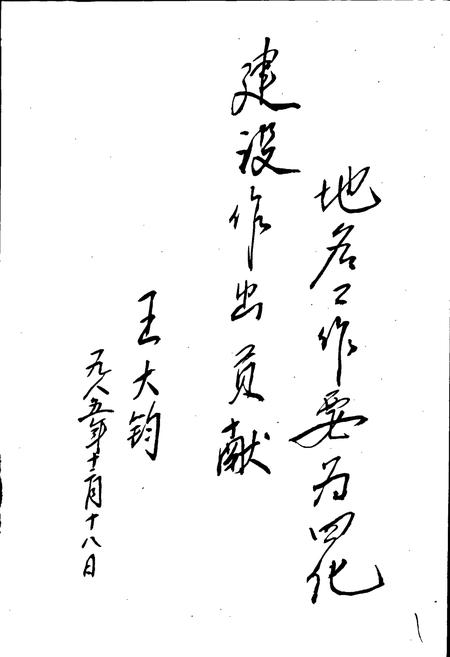 地名工作要为四化
建设作出贡献
王大钧
一九八五年十二月十八日